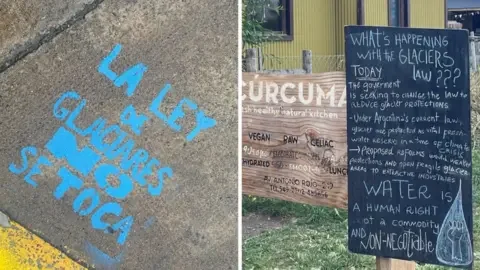 LA LEY
DE
GLACIARES
NO
SE TOCA
CÚRCUMA
fresh healthy natural kitchen
VEGAN RAW CELIAC
LUNCH
AV ANTONIO ROJO
WHAT'S HAPPENING
with the GLACIERS
TODAY law ???
The goverment
is seeking to change the law to
reduce glacier protections.
Under Argentina's current law,
glaciers are protected as vital
water reserves in a time of climate
crisis
→ proposed reforms would weaken
protections and open fragile glacier
areas to extractive industries
WATER IS
A HUMAN RIGHT
not a commodity
AND NON-NEGOTIABLE